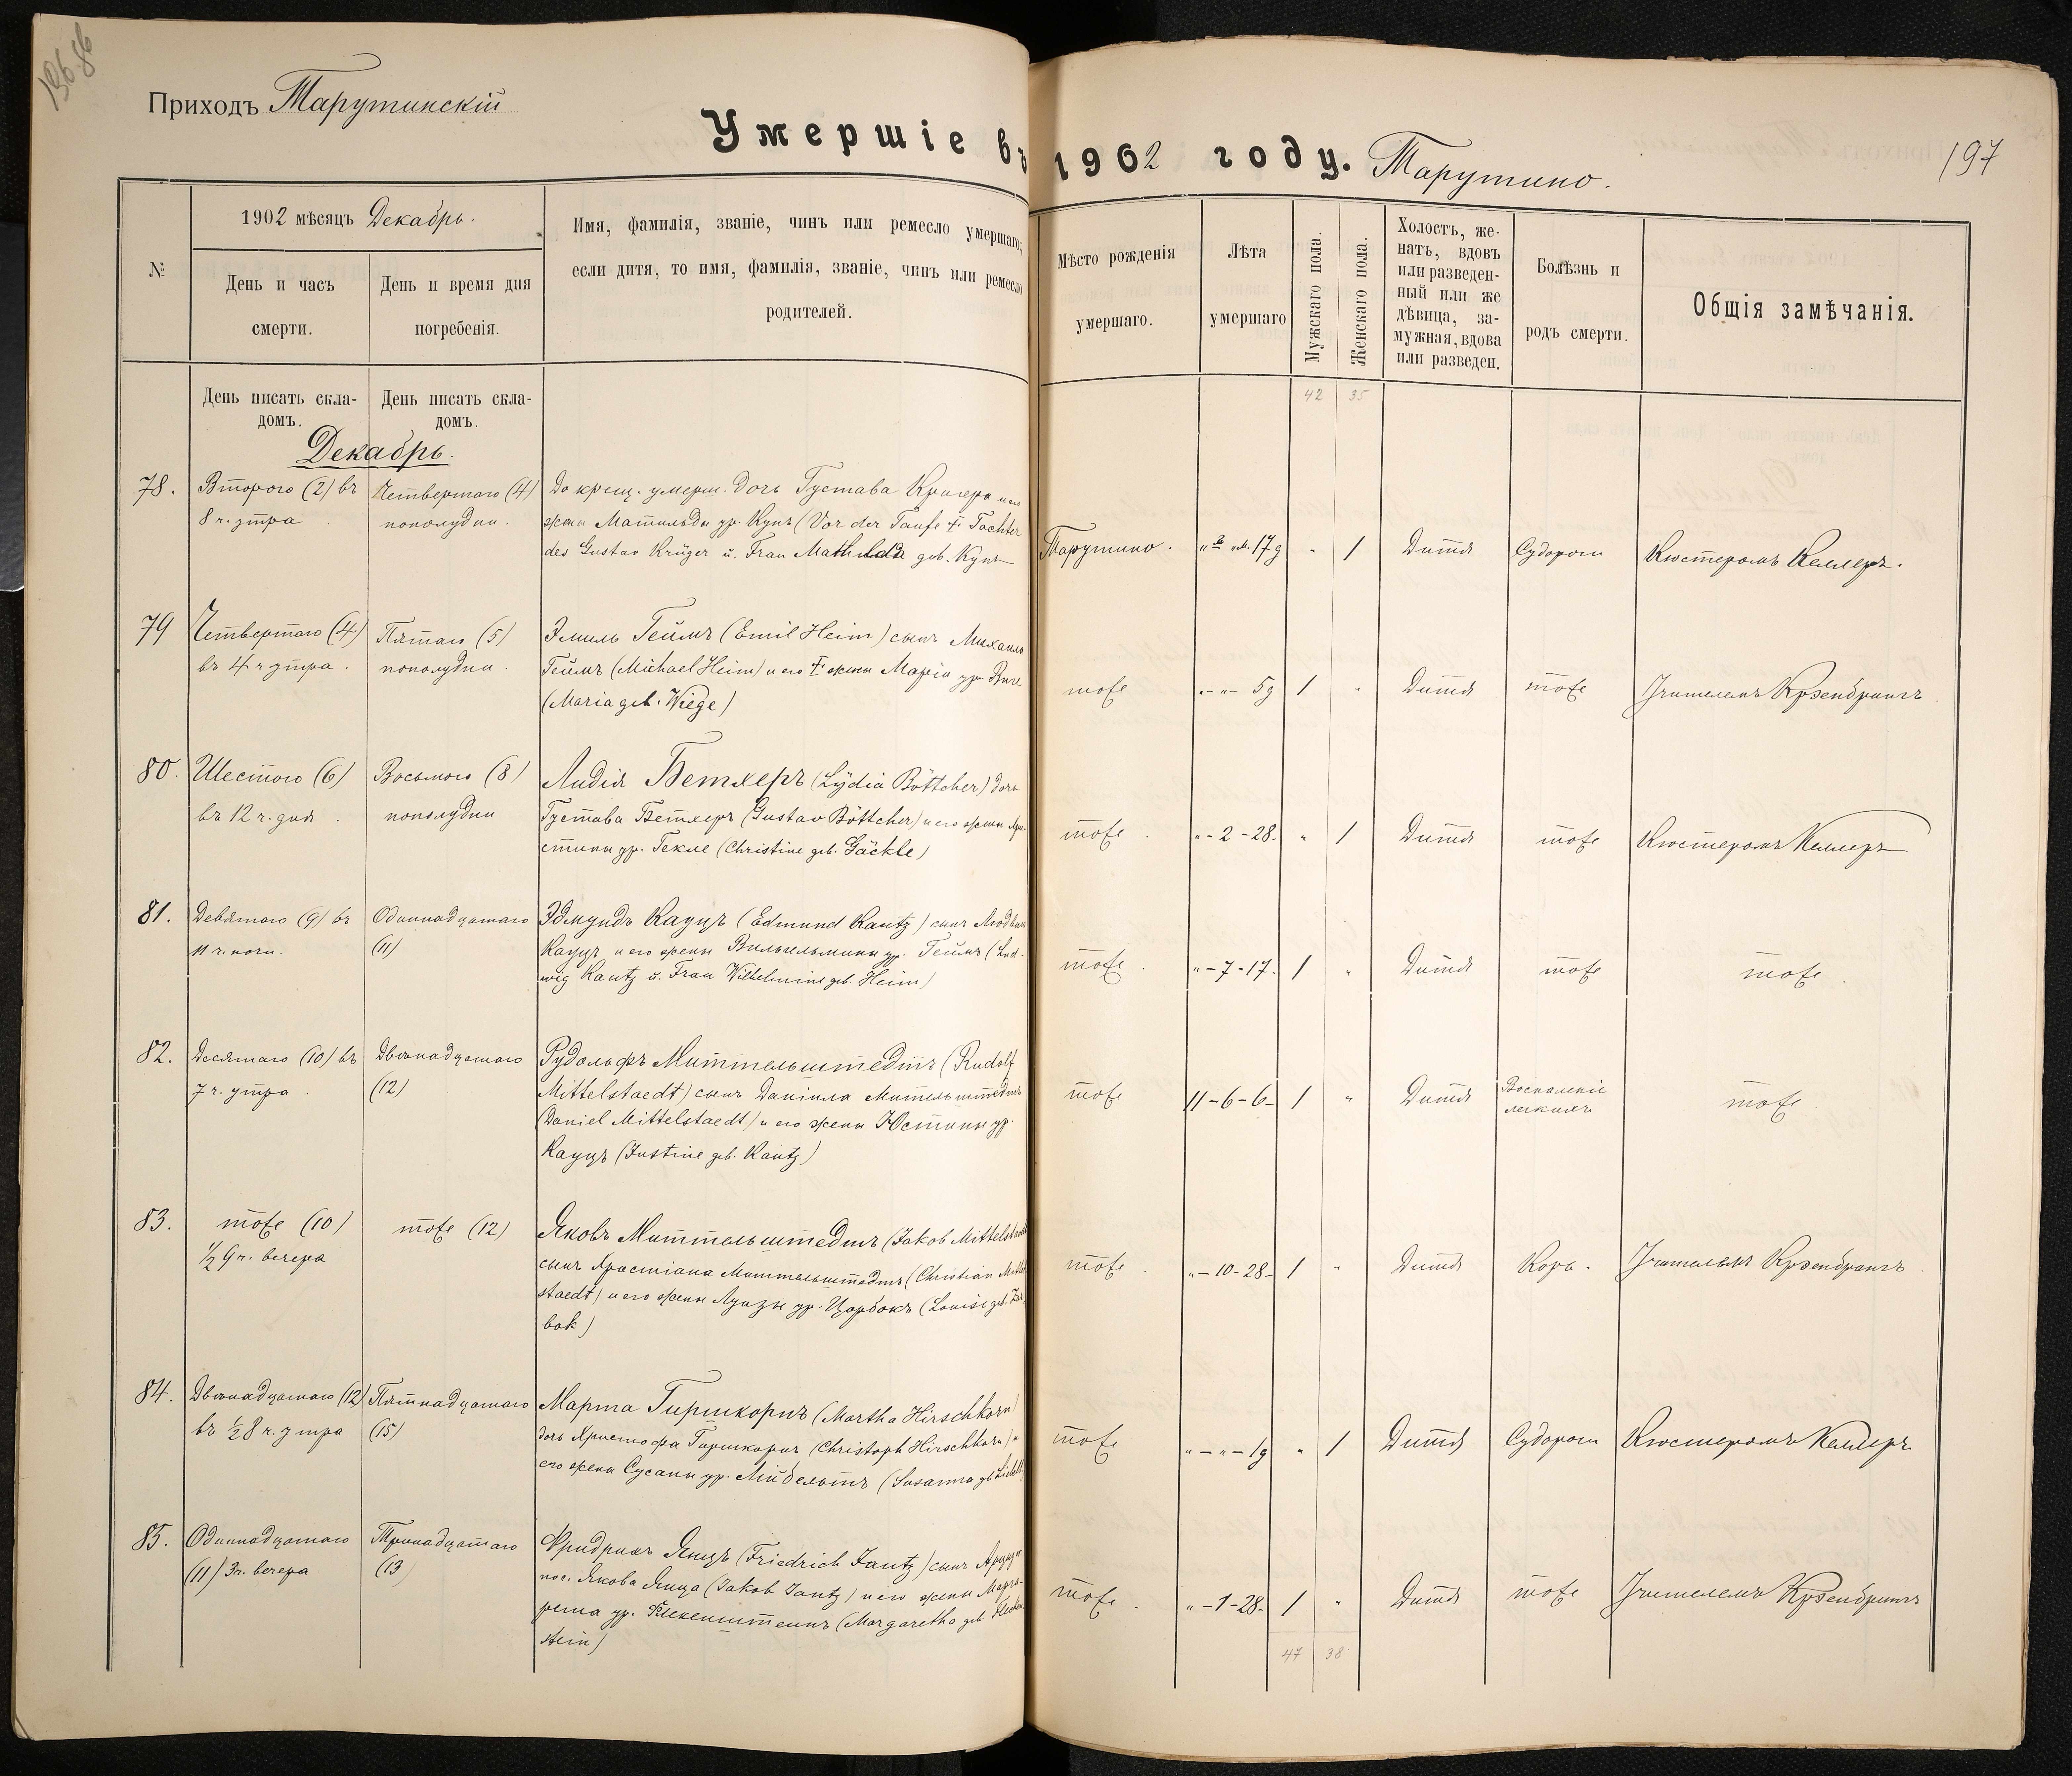 Приходъ Тарутинскій
Умершіе въ 1902 году. Тарутино.
197
№
1902 мѣсяцъ Декабрь.
День и часъ
смерти.
День и время дня
погребенія.
Имя, фамилія, званіе, чинъ или ремесло умершаго;
если дитя, то имя, фамилія, званіе, чинъ или ремесло
родителей.
Мѣсто рожденія
умершаго.
Лѣта
умершаго
Мужскаго пола.
Женскаго пола.
Холостъ, же-
натъ, вдовъ
или разведен-
ный или же
дѣвица, за-
мужная, вдова
или разведен.
Болѣзнь и
родъ смерти.
Общія замѣчанія.
День писать скла-
домъ.
День писать скла-
домъ.
42 35
Декабрь.
78.
Второго (2) въ
8 ч. утра
Четвертаго (4)
пополудни.
До крещ. умерш. дочь Густава Кригера и его
жены Матильды ур. Кунъ (Vor der Taufe † Tochter
des Gustav Krüger u. Frau Mathilda geb. Кунъ
Тарутино.
17 д
" 1
Дитя
Судороги
Кюстеромъ Келлеръ.
79
Четвертаго (4)
въ 4 ч утра.
Пятаго (5)
пополудни.
Эмиль Геймъ (Emil Heim) сынъ Михаила
Геймъ (Michael Heim) и его † жены Маріи ур. Виге
(Maria geb. Wiege)
тоже
"-"- 5д
1 "
Дитя
тоже
Учителемъ
80.
Шестого (6)
въ 12 ч. дня.
Восьмого (8)
пополудни
Лидія Бетхеръ (Lydia Böttcher) дочь
Густава Бетхеръ (Gustav Böttcher) и его жены Хри-
стины ур. Гекле (Christine geb. Gäckle)
тоже
"-2-28-
" 1
Дитя
тоже
Кюстеромъ Келлеръ
81.
Девятаго (9) въ
11 ч. ночи.
Одиннадцатаго
(11)
Эдмундъ Кауцъ (Edmund Kautz) сынъ Людвига
Кауцъ и его жены Вильгельмины ур. Геймъ (Lud-
wig Kautz u. Frau Wilhelmine geb. Heim)
тоже.
"-7-17.
1 "
Дитя
тоже
тоже.
82.
Десятаго (10) въ
7 ч. утра.
Двѣнадцатаго
(12)
Рудольфъ Миттельштедтъ (Rudolf
Mittelstaedt) сынъ Даніила Мительштедтъ
(Daniel Mittelstaedt) и его жены Юстины ур.
Кауцъ (Justine geb. Kautz)
тоже
11-6-6-
1 "
Дитя
Воспаленіе
легкихъ
тоже
83.
тоже (10)
½ 9 ч. вечера
тоже (12)
Яковъ Миттельштедтъ (Jakob Mittelstaedt
сынъ Христіана Миттельштедтъ (Christian Mittel-
staedt) и его жены Луизы ур. Царбокъ (Louise geb. Zar-
bok)
тоже.
"-10-28-
1 "
Дитя
Корь.
Учителемъ
84.
Двѣнадцатаго (12)
въ ½ 8 ч. утра
Пятнадцатаго
(15)
Марта Гиршкорнъ (Martha Hirschkorn)
дочь Христофа Гиршкорнъ (Christoph Hirschkorn) и
его жены Сусаны ур. (Susanna geb.
тоже
"-"-1д
" 1
Дитя
Судороги
Кюстеромъ Келлеръ
85.
Одиннадцатаго
(11) 3 ч. вечера
Тринадцатаго
(13)
Фридрихъ Янцъ (Friedrich Jantz) сынъ
пос. Якова Янца (Jakob Jantz) и его жены Марга-
рета ур. Флекенштеинъ (Margaretha geb. Flecken-
stein)
тоже.
"-1-28-
1 "
Дитя
тоже
Учителемъ
47 38